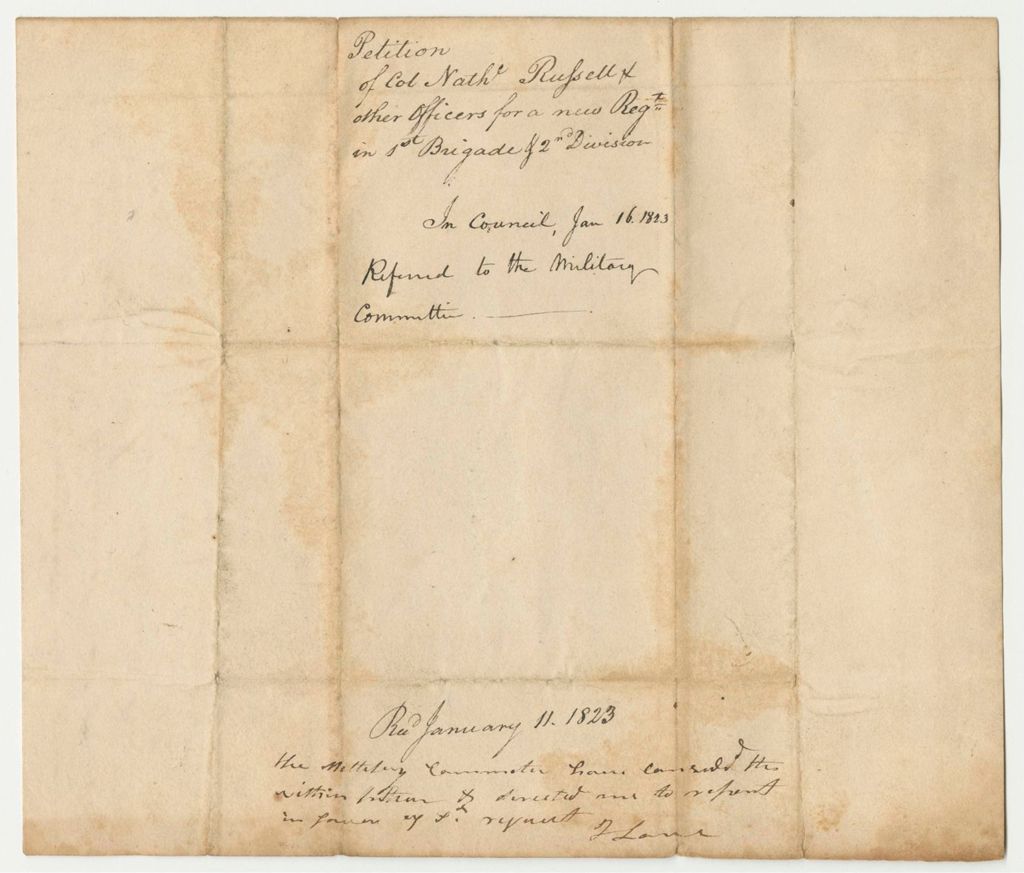 Petition
of Col Nathl Russell &
other Officers for a new Regt
in 1st Brigade & 2nd Division
In Council, Jan 16. 1823
Referred to the Military
Committee.
Recd January 11. 1823
the Military Committee have considd the
within & directed me to report
in favor of sd request
J Lane